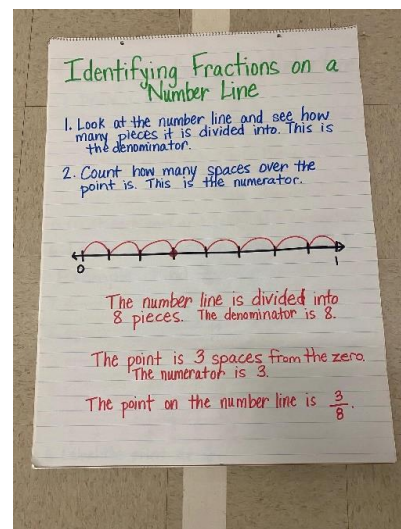 Identifying Fractions on a
Number Line
1. Look at the number line and see how
many pieces it is divided into. This is
the denominator.
2. Count how many spaces over the
point is. This is the numerator.
0 1
The number line is divided into
8 pieces. The denominator is 8.
The point is 3 spaces from the zero.
The numerator is 3.
The point on the number line is 3/8.